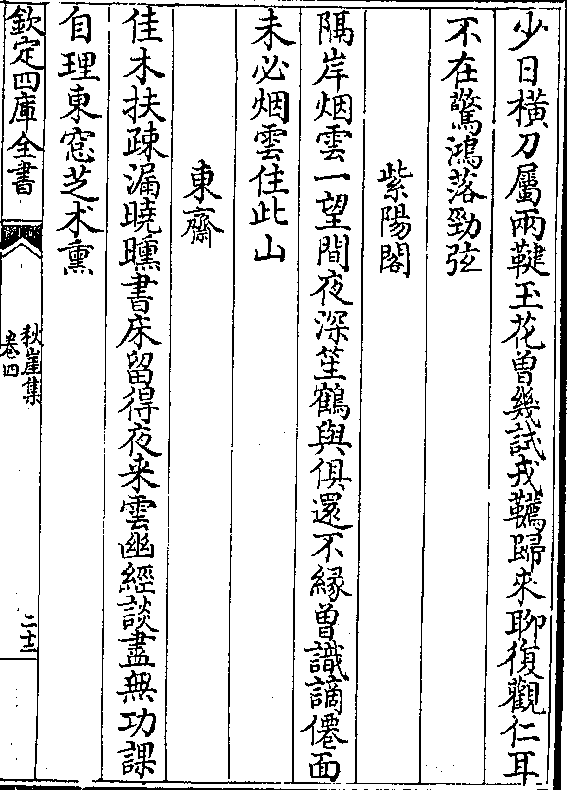 少日橫刀屬兩鞬玉花曽幾試戎韉歸來聊復觀仁耳
不在驚鴻落勁弦
紫陽閣
隔岸烟雲一望間夜深笙鶴與俱還不縁曽識謫僊面
未必烟雲住此山
東齋
佳木扶疎漏曉曛書床留得夜来雲幽經談盡無功課
自理東窓芝术熏
欽定四庫全書
秋崖集
卷四
二十三